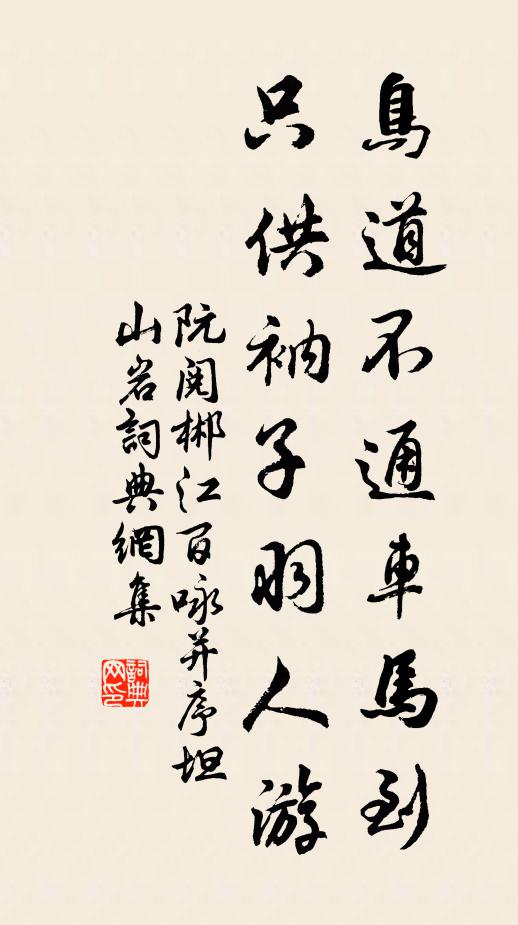 鳥道不通車馬到
只供衲子羽人游
阮閱郴江百咏并序坦
山岩詞典網集
詞典
网印